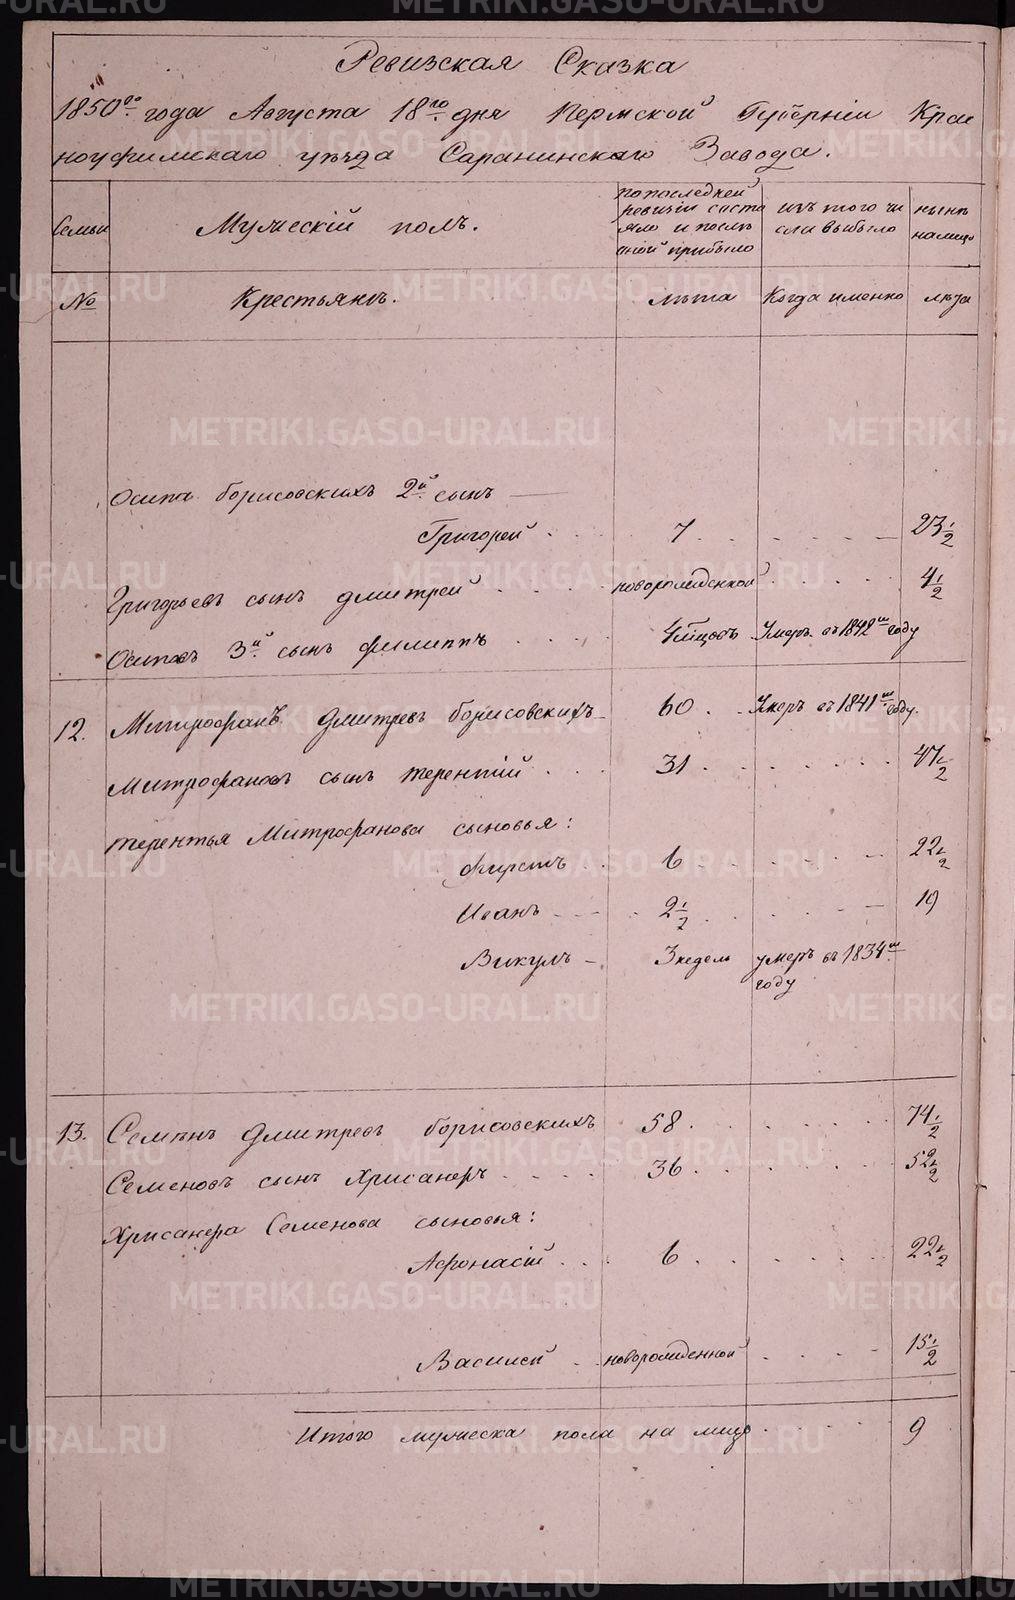 Ревизская Сказка
1850го года Августа 18го дня Пермской Губерніи Крас
ноуфимскаго уѣзда Саранинскаго Завода.
Семьи
Мужескій полъ.
по последней
ревизіи состо
яло и послѣ
оной прибыло
изъ того чи
сла выбыло
нынѣ
на лицо
№
Крестьянъ.
лѣта
Когда именно
лѣта
Осипа Борисовскихъ 2й сынъ
Григорей 7 23 1/2
Григорьевъ сынъ Дмитрей новорожденной 4 1/2
Осиповъ 3й сынъ Филиппъ 4 мѣцовъ Умеръ въ 1842м году
12. Митрофанъ Дмитревъ Борисовскихъ 60 Умеръ въ 1841м году.
Митрофановъ сынъ Терентій 31 47 1/2
Терентья Митрофанова сыновья:
Фирстъ 6 22 1/2
Иванъ 2 1/2 19
Викулъ 3 недель умеръ въ 1834м
году
13. Семенъ Дмитревъ Борисовскихъ 58 74 1/2
Семеновъ сынъ Хрисанфъ 36 52 1/2
Хрисанфа Семенова сыновья:
Афонасій 6 22 1/2
Василей новорожденной 15 1/2
Итого мужеска пола на лицо 9
METRIKI.GASO-URAL.RU